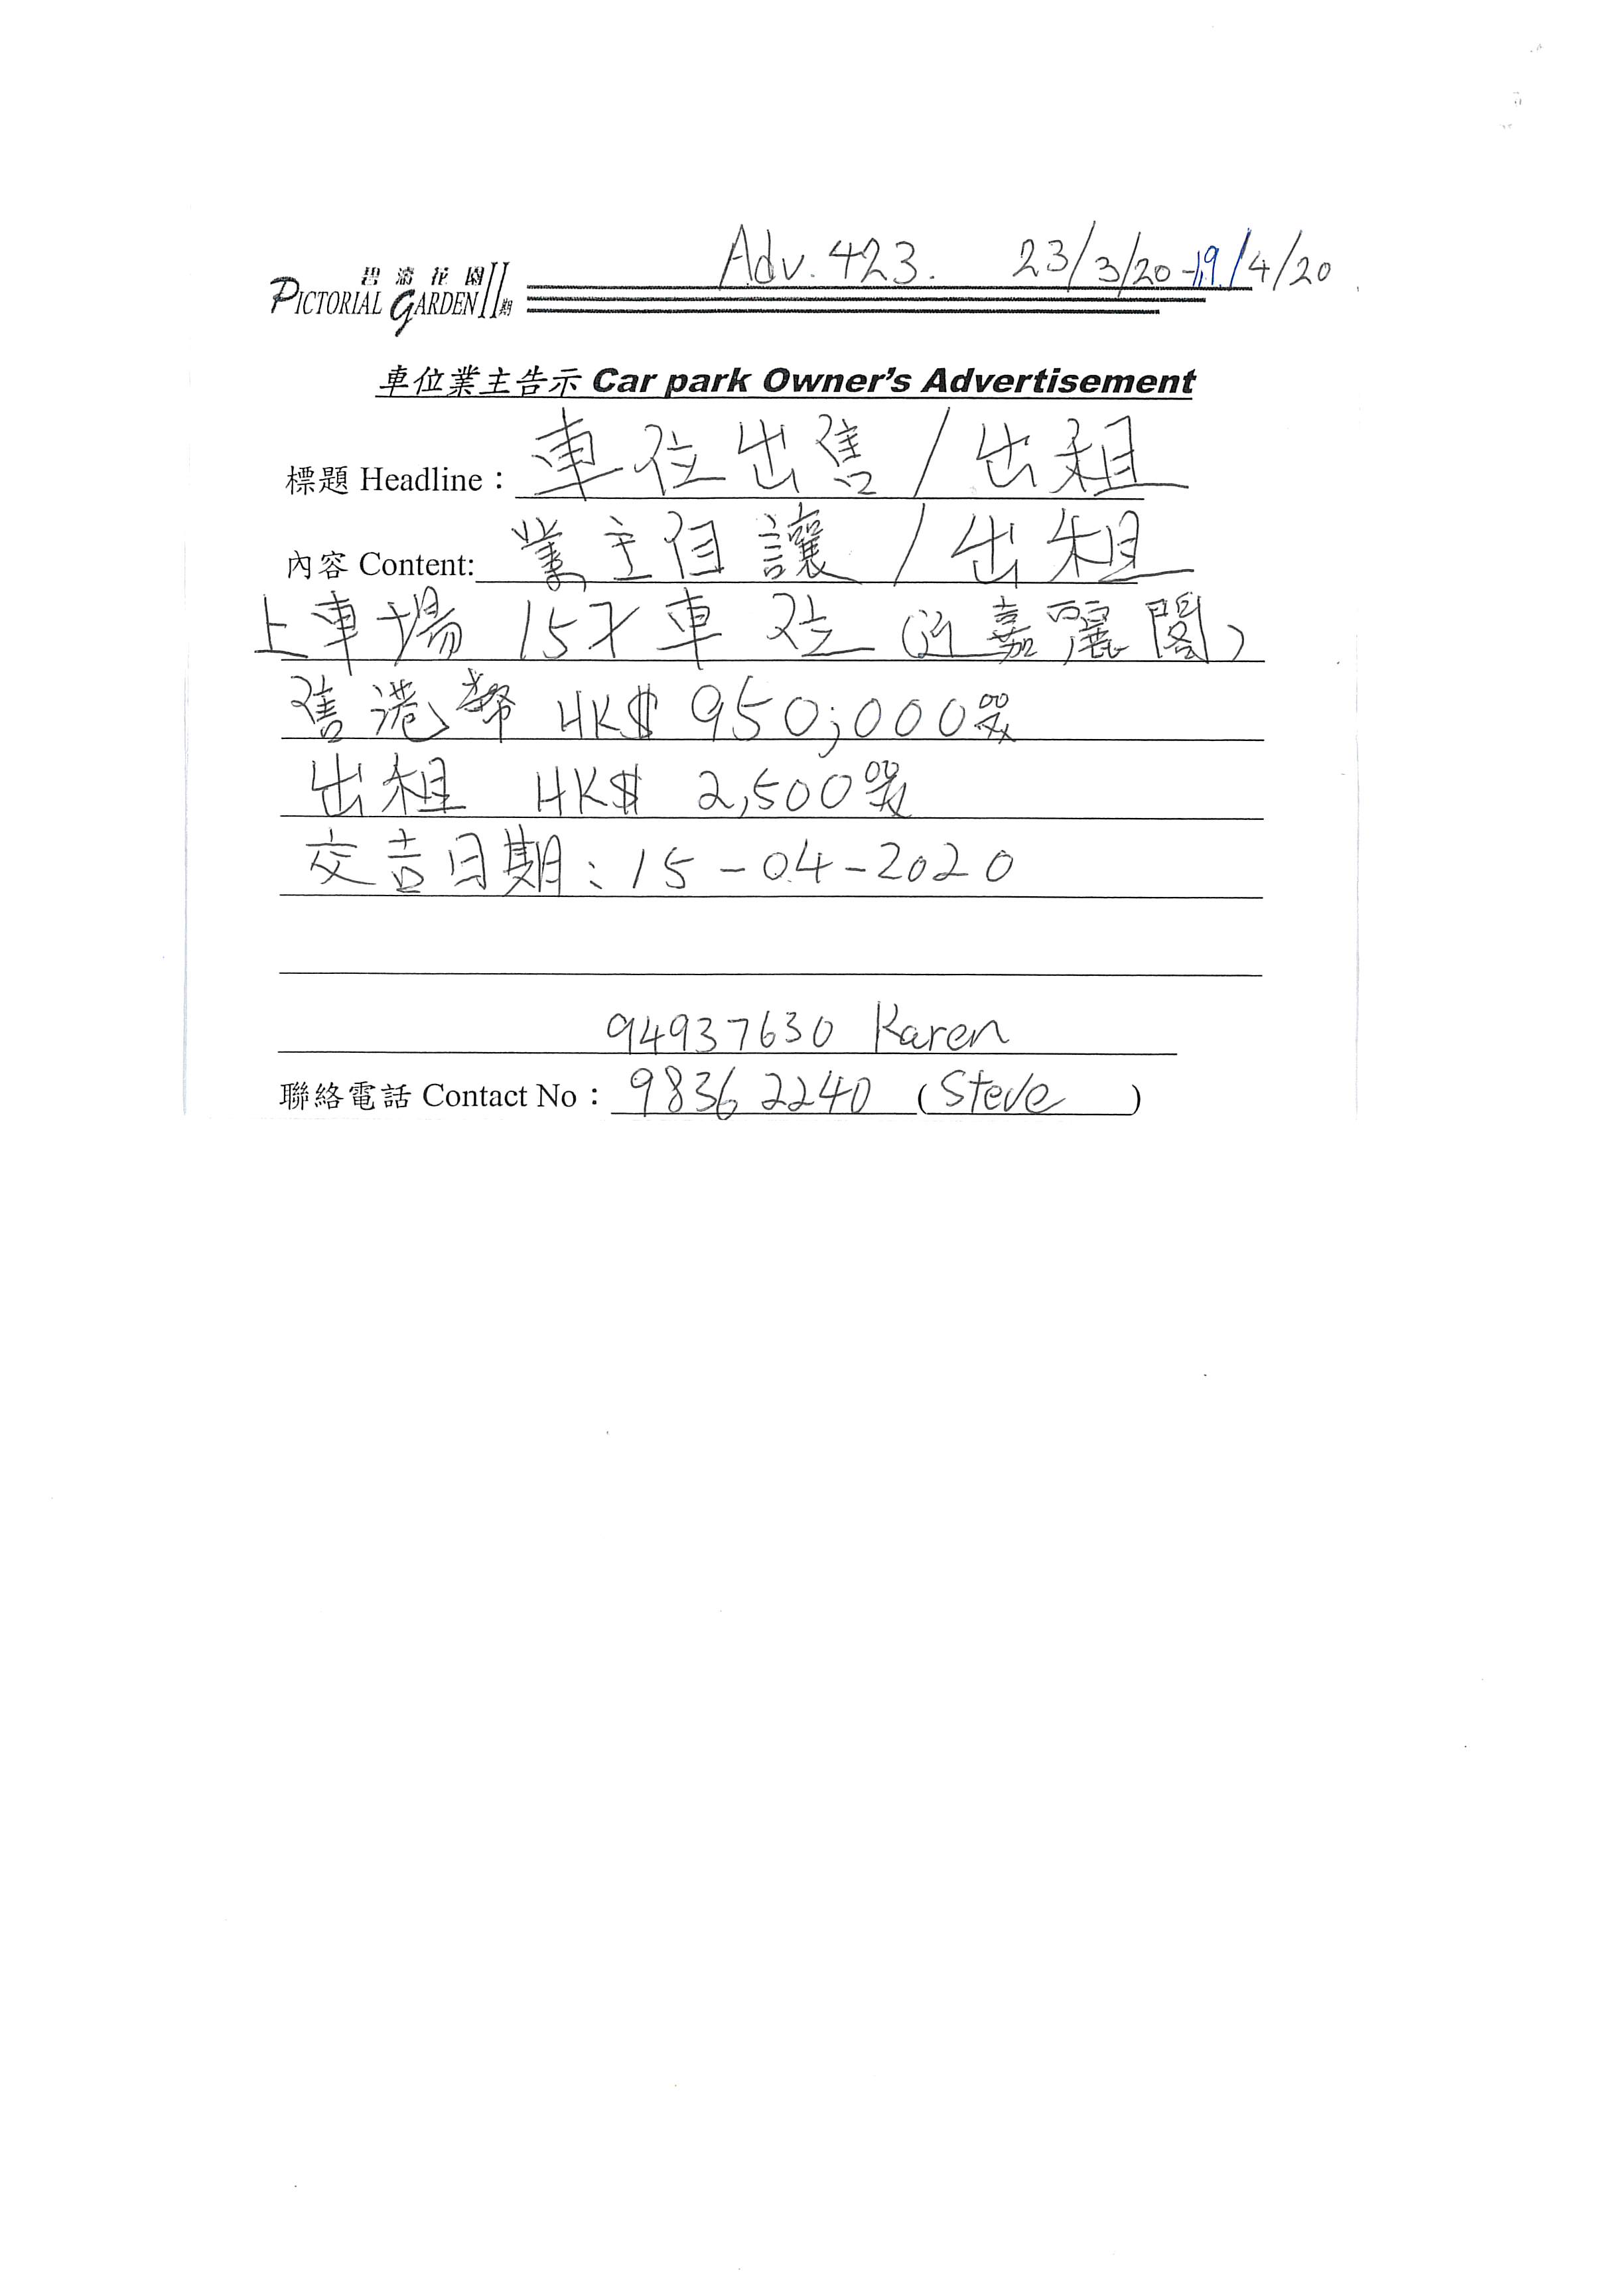 Adv. 423. 23/3/20-19/4/20
碧濤花園II期
PICTORIAL GARDEN
車位業主告示 Car park Owner's Advertisement
標題 Headline： 車位出售/出租
內容 Content: 業主自讓/出租
上車場 15才車位 (近嘉麗閣)
售港幣 HK$ 950,000
出租 HK$ 2,500
交吉日期: 15-04-2020
94937630 Karen
聯絡電話 Contact No： 98362240 (Steve)